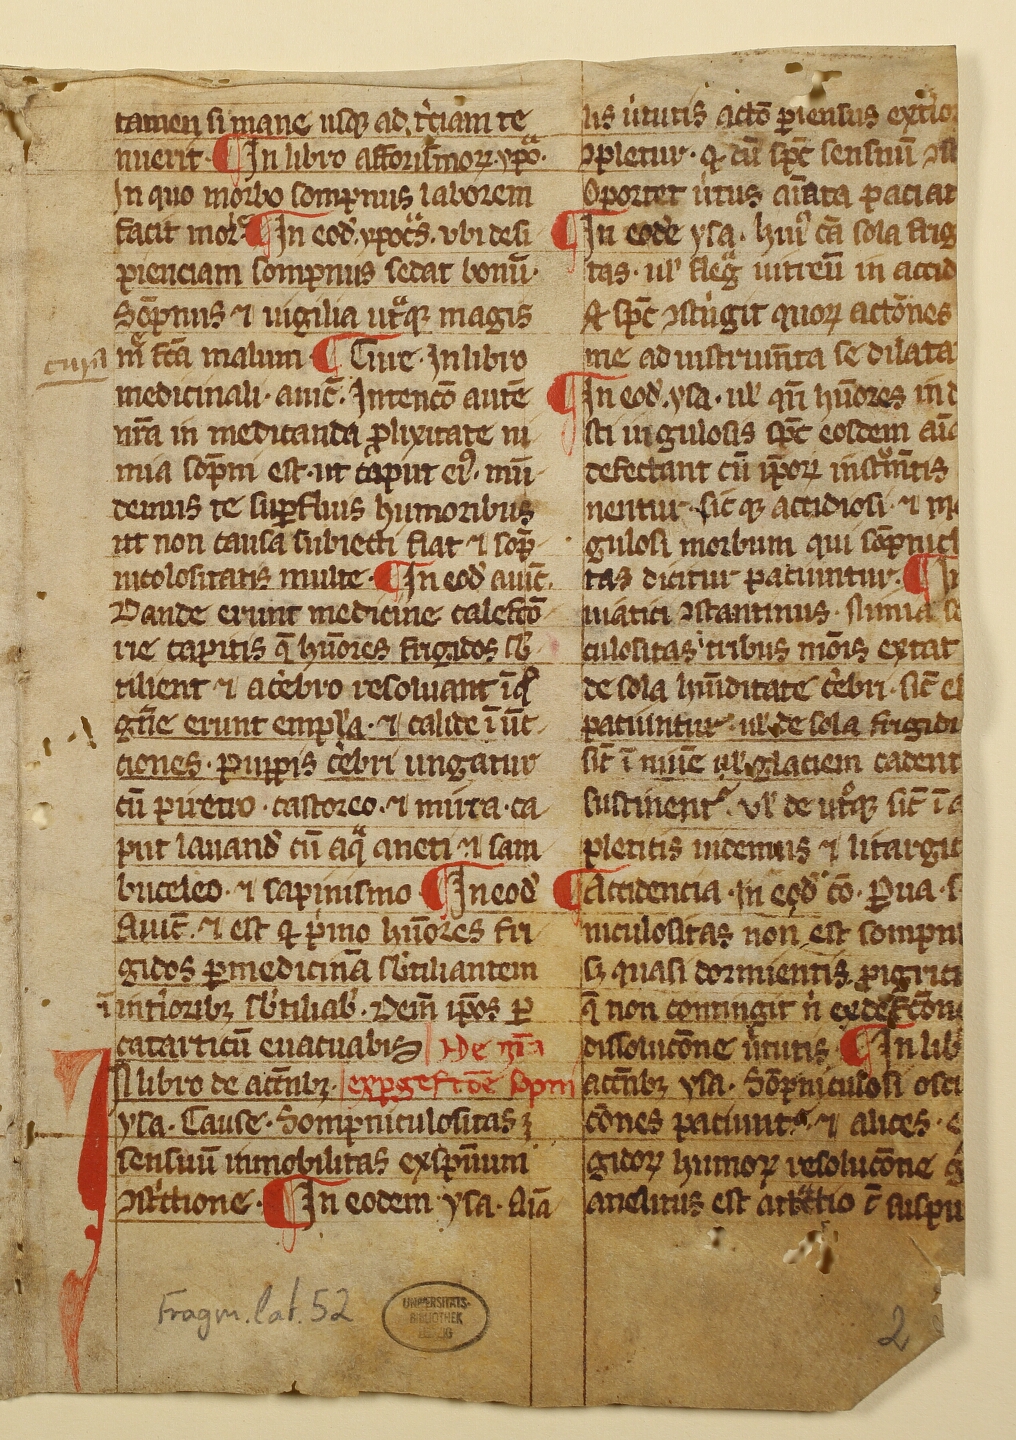 tamen si mane usq ad t̄ciam te
nuerit. ¶ In libro afforismorꝝ ypo.
In quo morbo sompnus laborem
facit mor ¶ In eod. ypoc̄s. vbi desi
pienciam sompnus sedat bonū.
Sōpnus ⁊ uigilia utͣqꝫ magis
m̄ fc̄a malum ¶ Cure. In libro
cura
medicinali. auic̄. Intencō autē
nr̄a in medicanda ꝓlixitate ni
mia sōpni est. ut caput eiꝰ. mū
demus te suꝑfluis humoribus
ut non causa subiecti fiat ⁊ sop̄
nicolositatis multe. ¶ In eod auic̄.
Dande erunt medicine calefcō
rie capitis q̄ hūores frigidos sb̄
tilient ⁊ acēbro resoluant īqͥ
gn̄e erunt empl̄a. ⁊ calide ī ūc
ciones. puppis cēbri ungatur
cū piretro. castoreo. ⁊ mirra. ca
put lauand cū aqͣ aneti ⁊ sam
buceleo. ⁊ sapinismo ¶ In eod
Auic̄. ⁊ est q ꝑmo hūores fri
gidos ꝑ medicinā sb̄tiliantem
inti̅oribꝫ sb̄tiliab. Dein̄ ip̄os ꝑ
catarticū euacuabis De
In libro de acc̄nbꝫ. sōpni
ysa. Cause. Sompniculositas ꝫ
sensuū inmobilitas ex spūum
ꝯst̄ctione. ¶ In eodem ysa. Aīa
lis u̅tutis actō ꝑ pensus ext̄io
ꝯpletur. q cū sp̄c sensuū ꝯst
Oportet ūtus aīata paciat
¶ In eodē ysa. huiꝰ cā sola frig
tas. ul fleḡ uitreū in accid
A sp̄c ꝯst̄ngit quorꝝ actōnes
me ad instrum̄ta se dilata
¶ In eod. ysa. ul qn̄ hūores in d
sti uigulosis sp̄c eosdem aīa
defectant cū ip̄orꝝ inst̄m̄tis
nentur. sic qꝫ accidiosi. ⁊
gulosi morbum qui sōpnicl
tas dicitur paciuntur. ¶
uiatici ꝯstantinus. Nimia
culositas tribus mōis extat
de sola hūiditate cēbri. sic̄ e
paciuntur. ul de sola frigidi
sic̄ ī niue ul glaciem cadent
sustinent. Vl de utͦqꝫ sic̄ ī
pletitis uidemus ⁊ litargic
¶ Accidencia. In eod cō. Pua.
niculositas non est sompn
sꝫ quasi dormientis pigriti
q̄ non contingit n̄ ex defc̄cōne
dissolucōne u̅tutis ¶ In lib
acc̄nbꝫ ysa. Sōpniculosi osci
cōnes paciunt̄. ⁊ alices.
gidorꝝ humorꝝ resolucōne
anelitus est attͣctio
Fragm. lat. 52
UNIVERSITÄTS-
BIBLIOTHEK
LEIPZIG
2